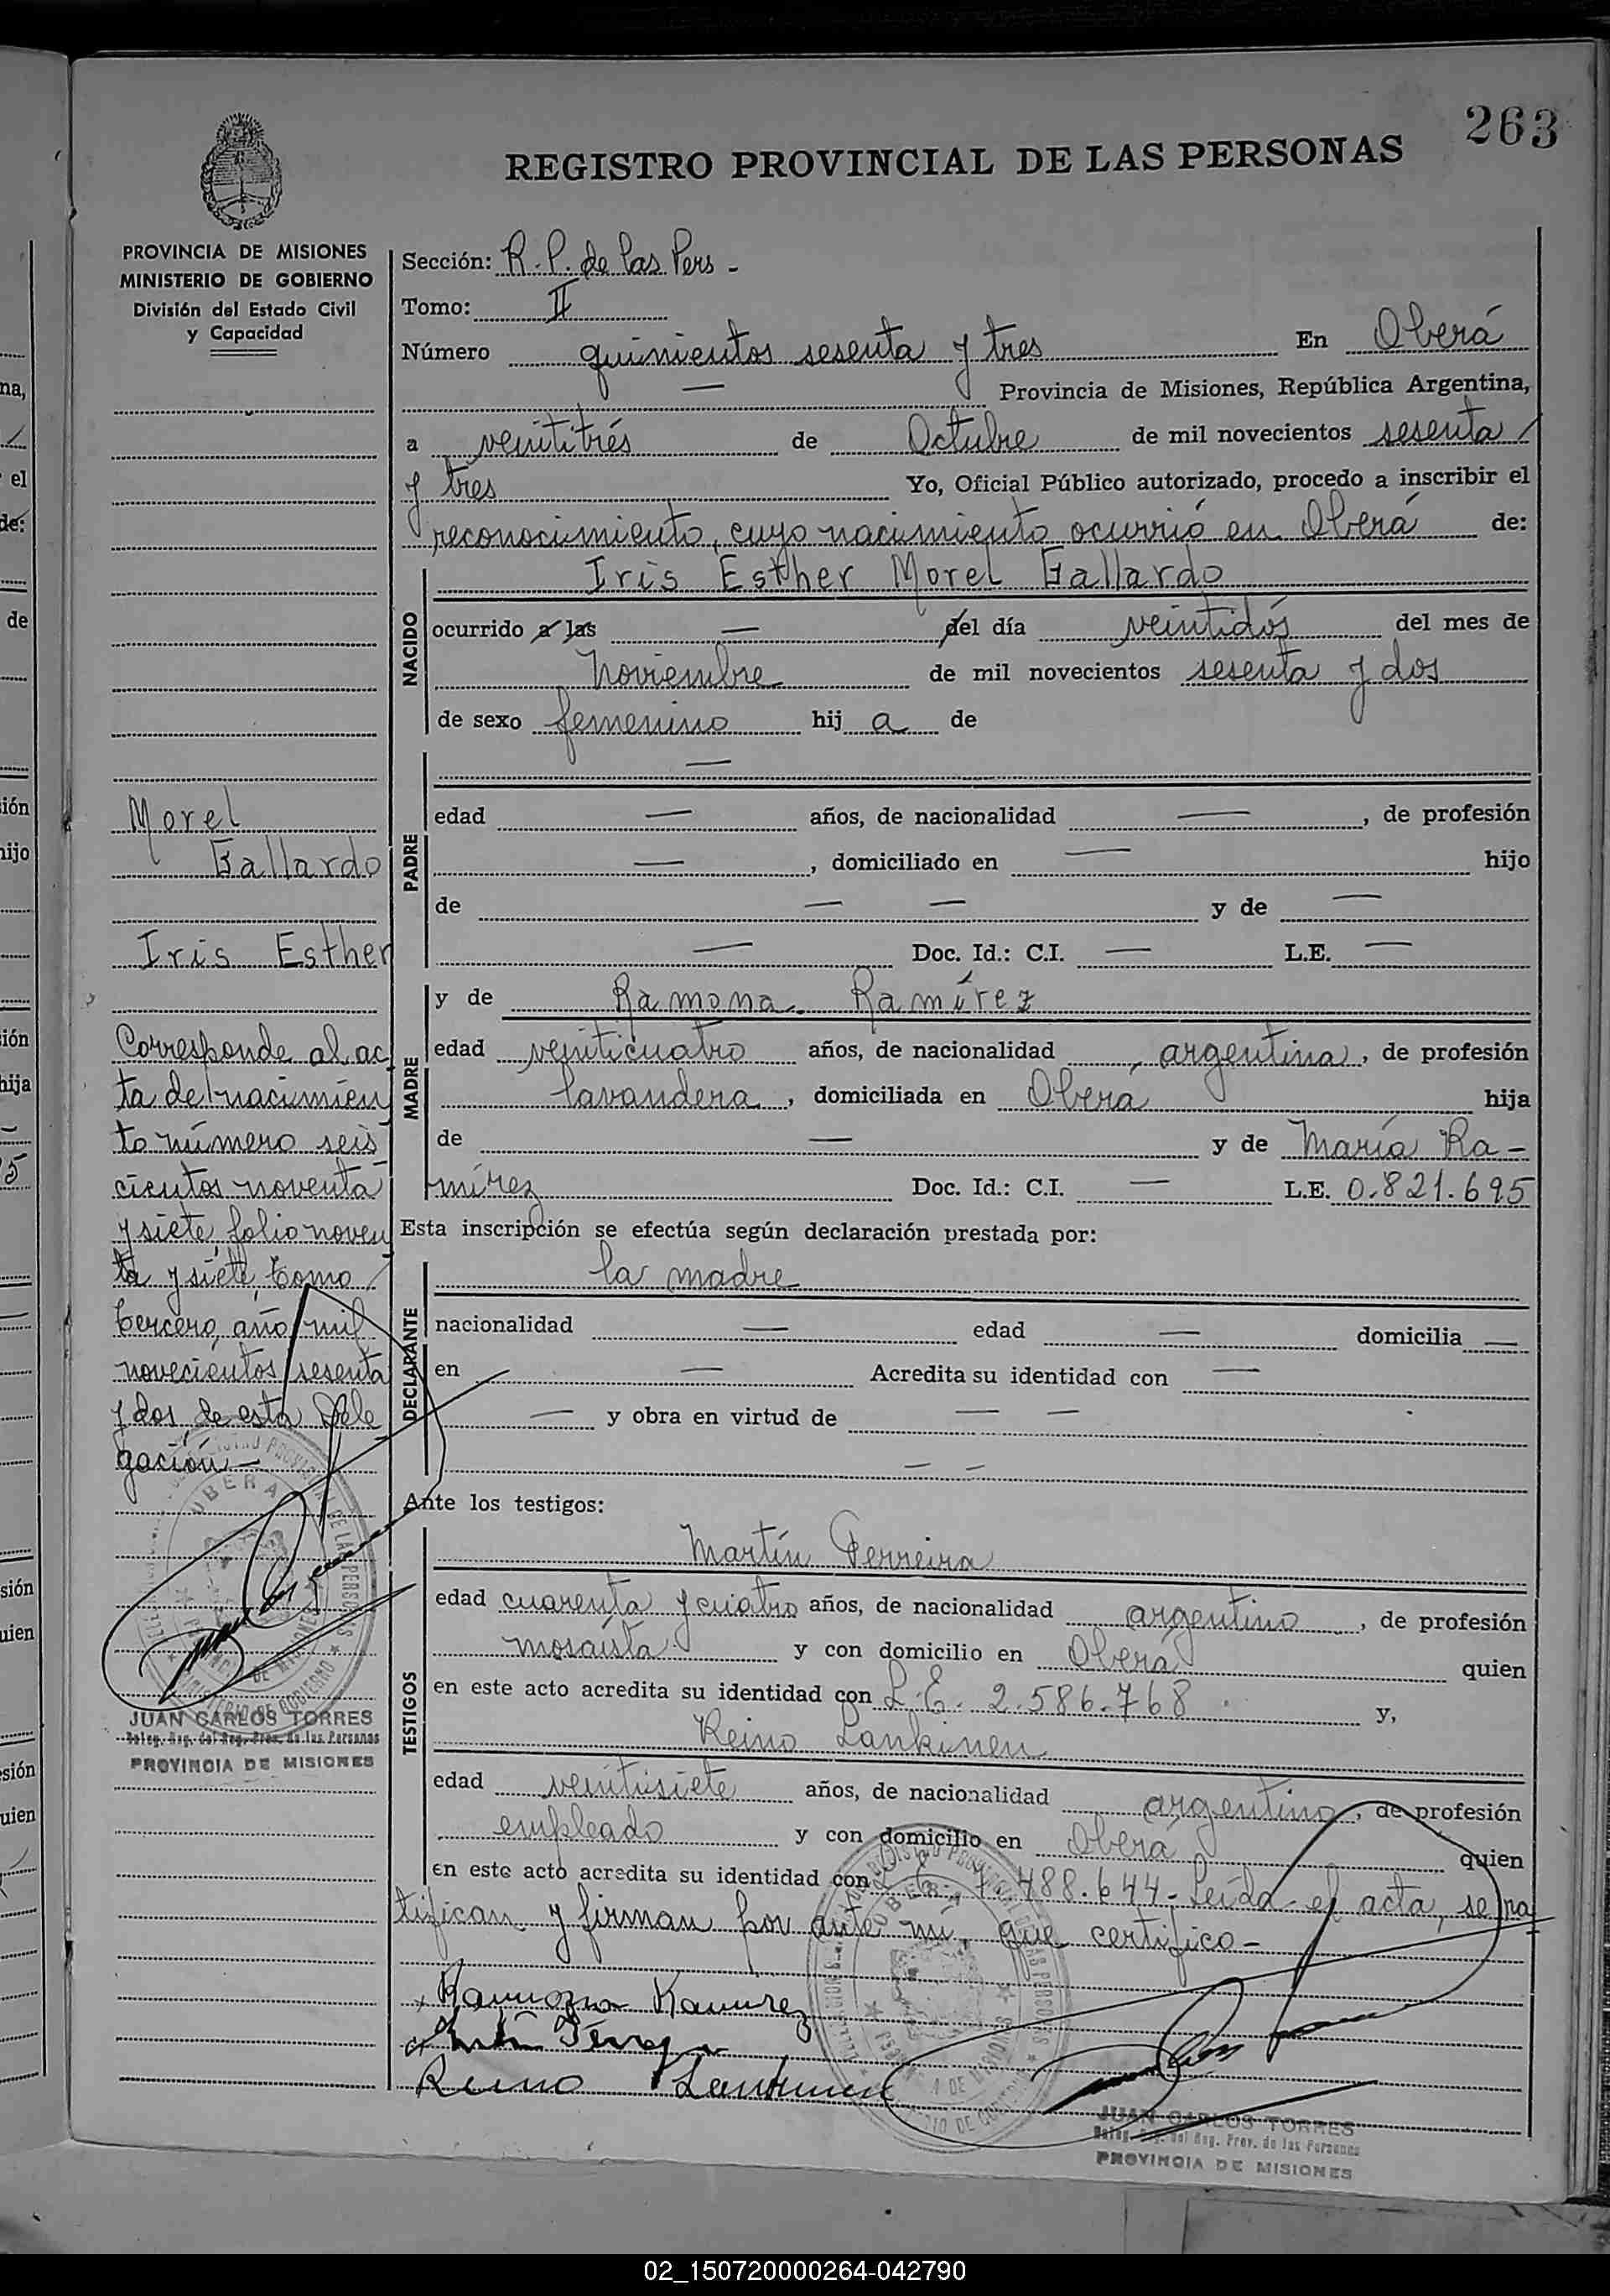 263
REGISTRO PROVINCIAL DE LAS PERSONAS
PROVINCIA DE MISIONES
MINISTERIO DE GOBIERNO
División del Estado Civil
y Capacidad
Morel
Gallardo
Iris Esther
Corresponde al ac
ta de nacimien
to número seis
cientos noventa
y siete, folio noven
ta y siete, tomo
tercero, año mil
novecientos sesenta
y dos de esta Dele
gación -
JUAN CARLOS TORRES
Deleg. Reg. del Reg. Prov. de las Personas
PROVINCIA DE MISIONES
Sección: R. P. de las Pers -
Tomo: II
Número quinientos sesenta y tres En Oberá
— Provincia de Misiones, República Argentina,
a veintitrés de Octubre de mil novecientos sesenta
y tres Yo, Oficial Público autorizado, procedo a inscribir el
reconocimiento, cuyo nacimiento ocurrió en Oberá de:
NACIDO
Iris Esther Morel Gallardo
ocurrido a las — del día veintidós del mes de
Noviembre de mil novecientos sesenta y dos
de sexo femenino hij a de
PADRE
—
edad — años, de nacionalidad —, de profesión
—, domiciliado en — hijo
de — — y de —
— Doc. Id.: C.I. — L.E. —
MADRE
y de Ramona Ramírez
edad veinticuatro años, de nacionalidad argentina, de profesión
lavandera, domiciliada en Oberá hija
de — y de María Ra-
mírez Doc. Id.: C.I. — L.E. 0.821.695
Esta inscripción se efectúa según declaración prestada por:
DECLARANTE
la madre
nacionalidad — edad — domicilia —
en — Acredita su identidad con —
— y obra en virtud de — —
— —
Ante los testigos:
TESTIGOS
Martín Ferreira
edad cuarenta y cuatro años, de nacionalidad argentino, de profesión
mosaista y con domicilio en Oberá quien
en este acto acredita su identidad con L.E. 2.586.768 y,
Reino Lankinen
edad veintisiete años, de nacionalidad argentino, de profesión
empleado y con domicilio en Oberá quien
en este acto acredita su identidad con 488.644- Leída el acta, se ra
tifican y firman por ante mí, que certifico-
Ramona Ramirez
Reino Lankinen
JUAN CARLOS TORRES
Deleg. Reg. del Reg. Prov. de las Personas
PROVINCIA DE MISIONES
02_150720000264-042790